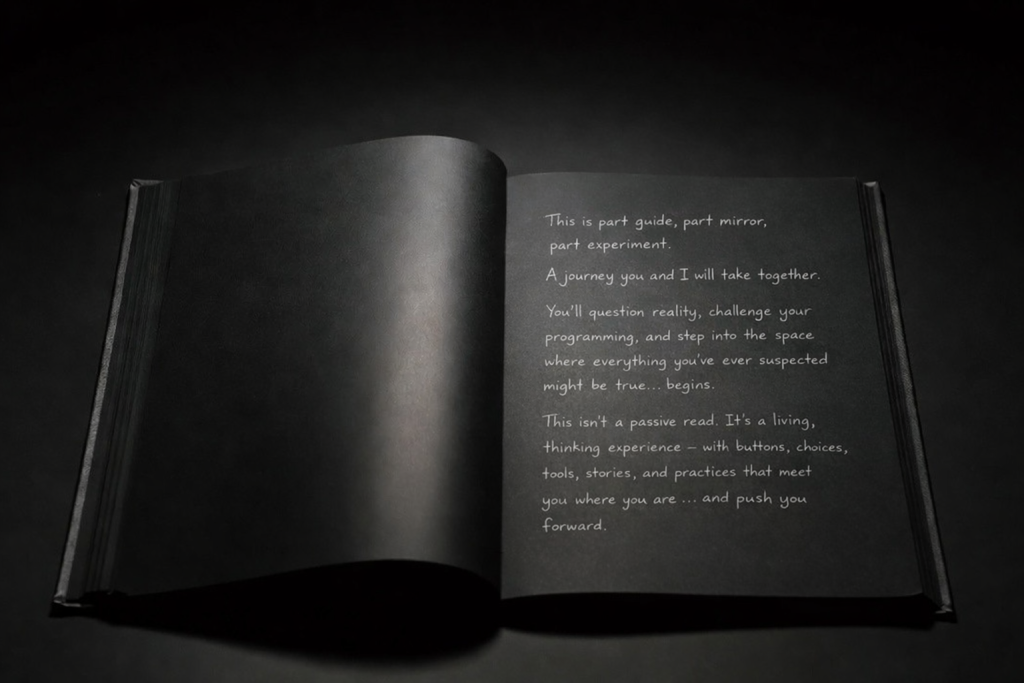 This is part guide, part mirror,
part experiment.
A journey you and I will take together.
You'll question reality, challenge your
programming, and step into the space
where everything you've ever suspected
might be true... begins.
This isn't a passive read. It's a living,
thinking experience – with buttons, choices,
tools, stories, and practices that meet
you where you are ... and push you
forward.